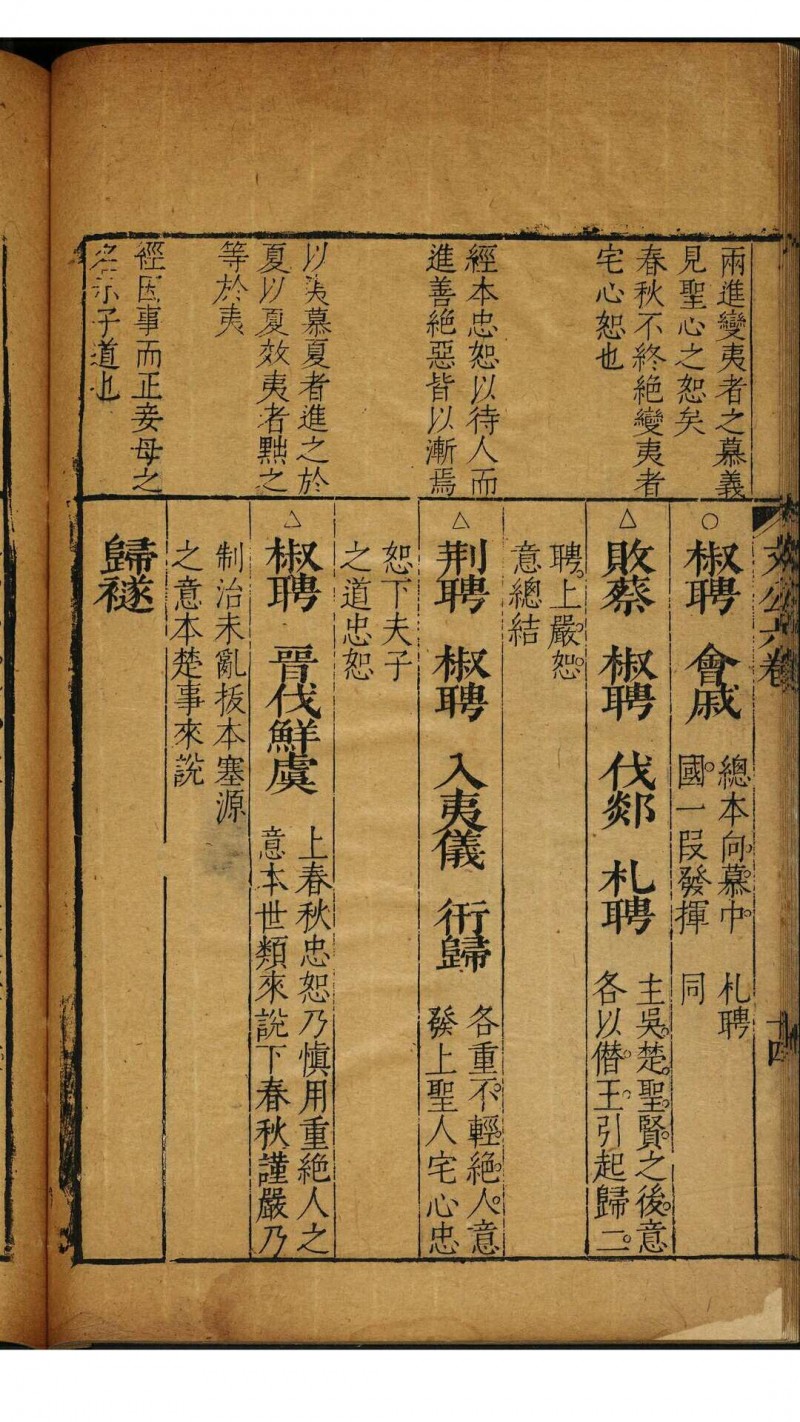 兩進變夷者之慕義
見聖心之恕矣
春秋不終絕變夷者
宅心恕也
經本忠恕以待人而
進善絕惡皆以漸焉
以夷慕夏者進之於
夏以夏效夷者黜之
等於夷
經因事而正妾母之
名示子道也
文公六卷
十四
○椒聘　會戚　總本向慕中　札聘
國一段發揮　同
△敗蔡　椒聘　伐郯　札聘　主吳楚聖賢之後意
各以僣王引起歸二
聘上嚴恕
意總結
△荆聘　椒聘　入夷儀　衎歸　各重不輕絕人意
發上聖人宅心忠
恕下夫子
之道忠恕
△椒聘　晉伐鮮虞　上春秋忠恕乃愼用重絕人之
意本世類來說下春秋謹嚴乃
制治未亂扳本塞源
之意本楚事來說
歸襚